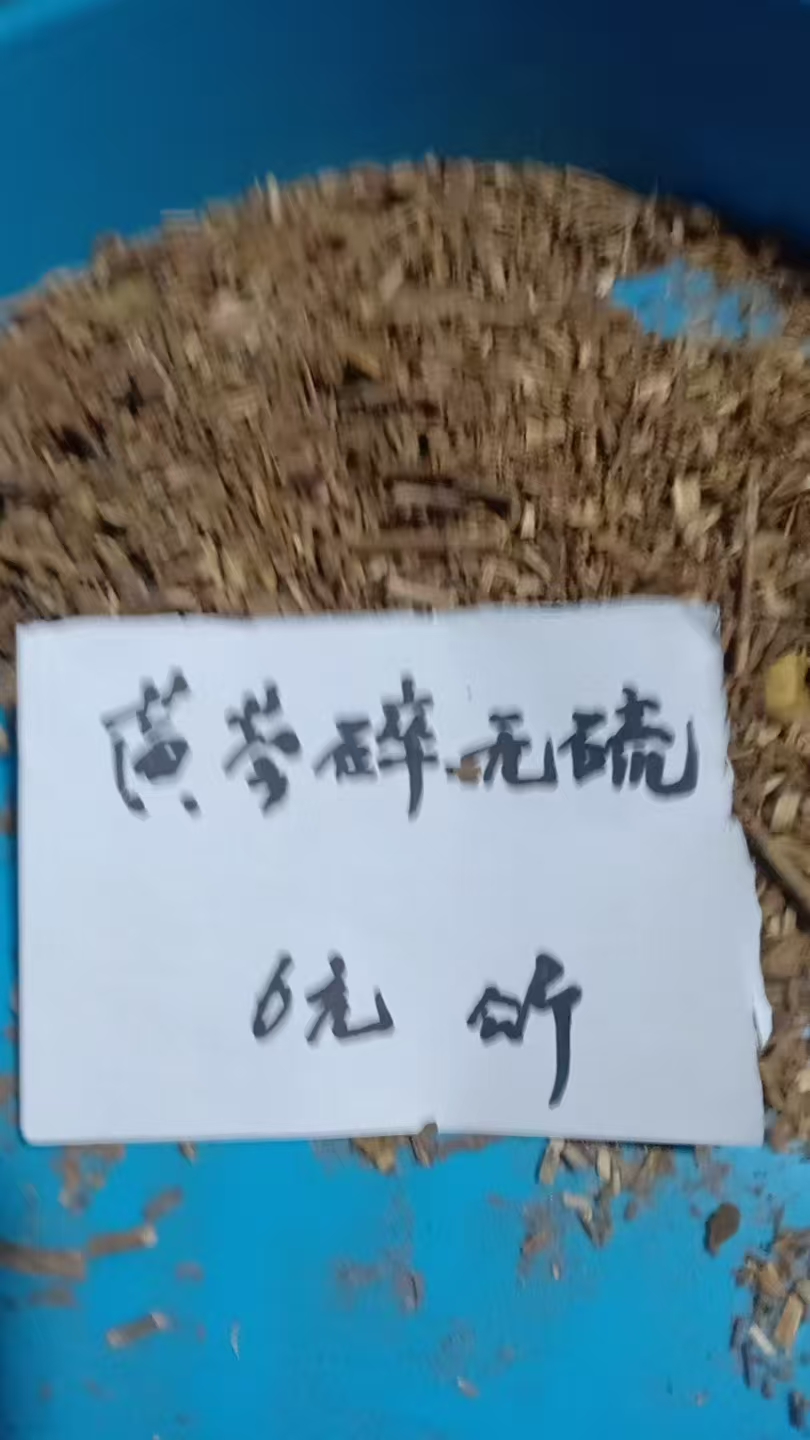 黄芩碎无硫
6元 公斤